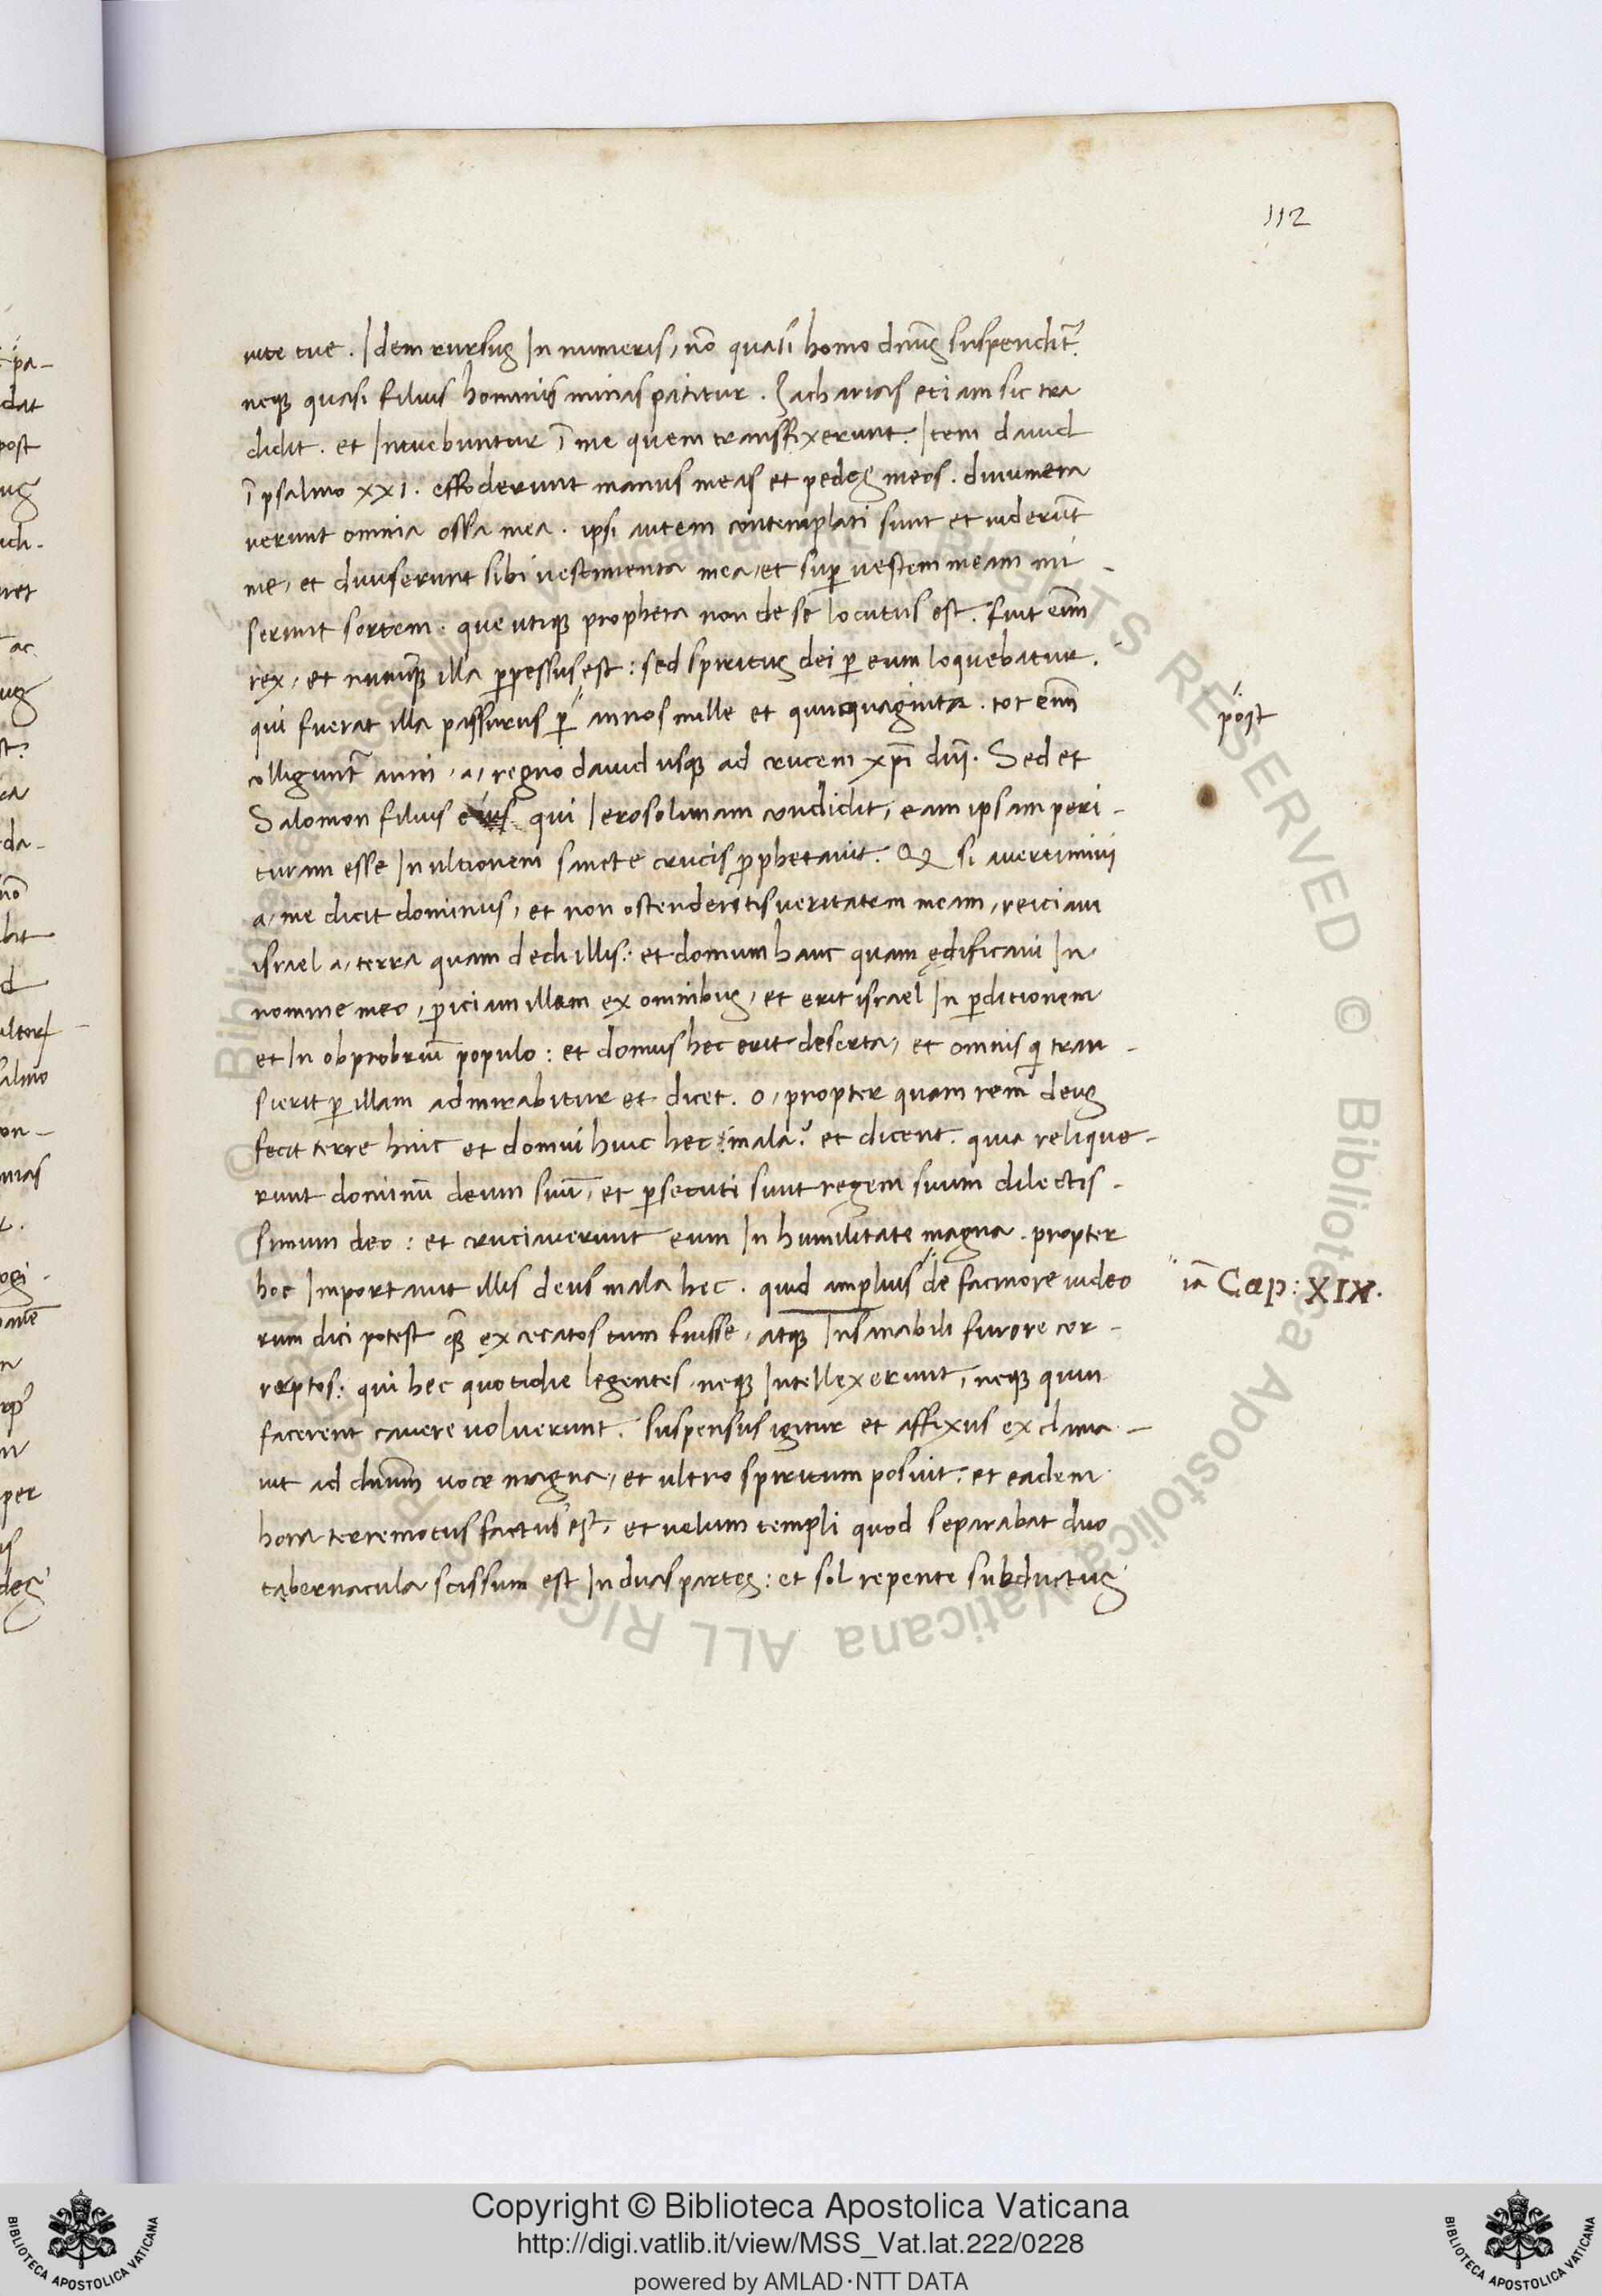 112
uite tue. Idem rursus In numeris, nō quasi homo dn̄us suspendit̄.
neque quasi filius hominis minas patitur. Zacharias etiam sic tra
didit. et Intuebuntur ī me quem transfixerunt. Item dauid
ī psalmo XXI. effoderunt manus meas et pedes meos. dinumera
uerunt omnia ossa mea. ipsi autem contemplati sunt et uiderūt
me, et diuiserunt sibi uestimenta mea, et super uestem meam mi-
serunt sortem. que utique propheta non de se locutus est. fuit enī
rex, et nunquā illa perpessus est: sed spiritus dei per eum loquebatur.
qui fuerat illa passurus per annos mille et quinquaginta. tot enī
post
colligunt̄ anni, a, regno dauid usque ad crucem xp̄i dn̄i. Sed et
Salomon filius eius qui Ierosolimam condidit, eam ipsam peri-
turam esse In ultionem sancte crucis prophetauit. Q si auertimini
a, me dicit dominus, et non ostenderitis ueritatem meam, reiciam
israel a, terra quam dedi illis: et domum hanc quam ędificaui In
nomine meo, proiciam illam ex omnibus, et erit israel In perditionem
et In obprobriū populo: et domus hec erit deserta, et omnis qi tran-
sierit per illam admirabitur et dicet. o, propter quam rem deus
fecit terre huic et domui huic hec mala? et dicent. quia relique-
runt dominū deum suū, et persecuti sunt regem suum dilectis-
simum deo: et cruciauerunt eum In humilitate magna. propter
hoc Importauit illis deus mala hec. quid amplius de facinore iudeo
iā Cap: XIX.
rum dici potest quā excecatos tum fuisse, atque Insanabili furore cor-
reptos: qui hec quotidie legentes, neque Intellexerunt, neque quin
facerent cauere uoluerunt. suspensus igitur et affixus exclama-
uit ad dn̄um uoce magna, et ultro spiritum posuit, et eadem
hora terremotus factus est, et uelum templi quod separabat duo
tabernacula scissum est In duas partes: et sol repente subductus
Copyright © Biblioteca Apostolica Vaticana
http://digi.vatlib.it/view/MSS_Vat.lat.222/0228
powered by AMLAD·NTT DATA